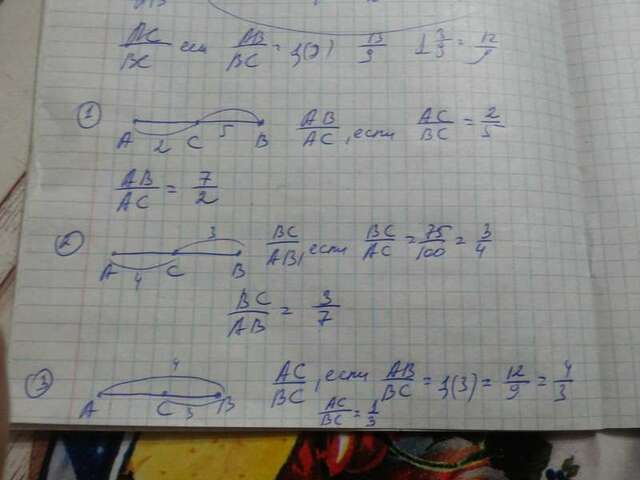 AC/BC если AB/BC = 1,(3) 13/9 1 3/9 = 12/9
① A 2 C 5 B AB/AC, если AC/BC = 2/5
AB/AC = 7/2
② A 4 C 3 B BC/AB, если BC/AC = 75/100 = 3/4
BC/AB = 3/7
③ 4 A C 3 B AC/BC, если AB/BC = 1,(3) = 12/9 = 4/3
AC/BC = 1/3